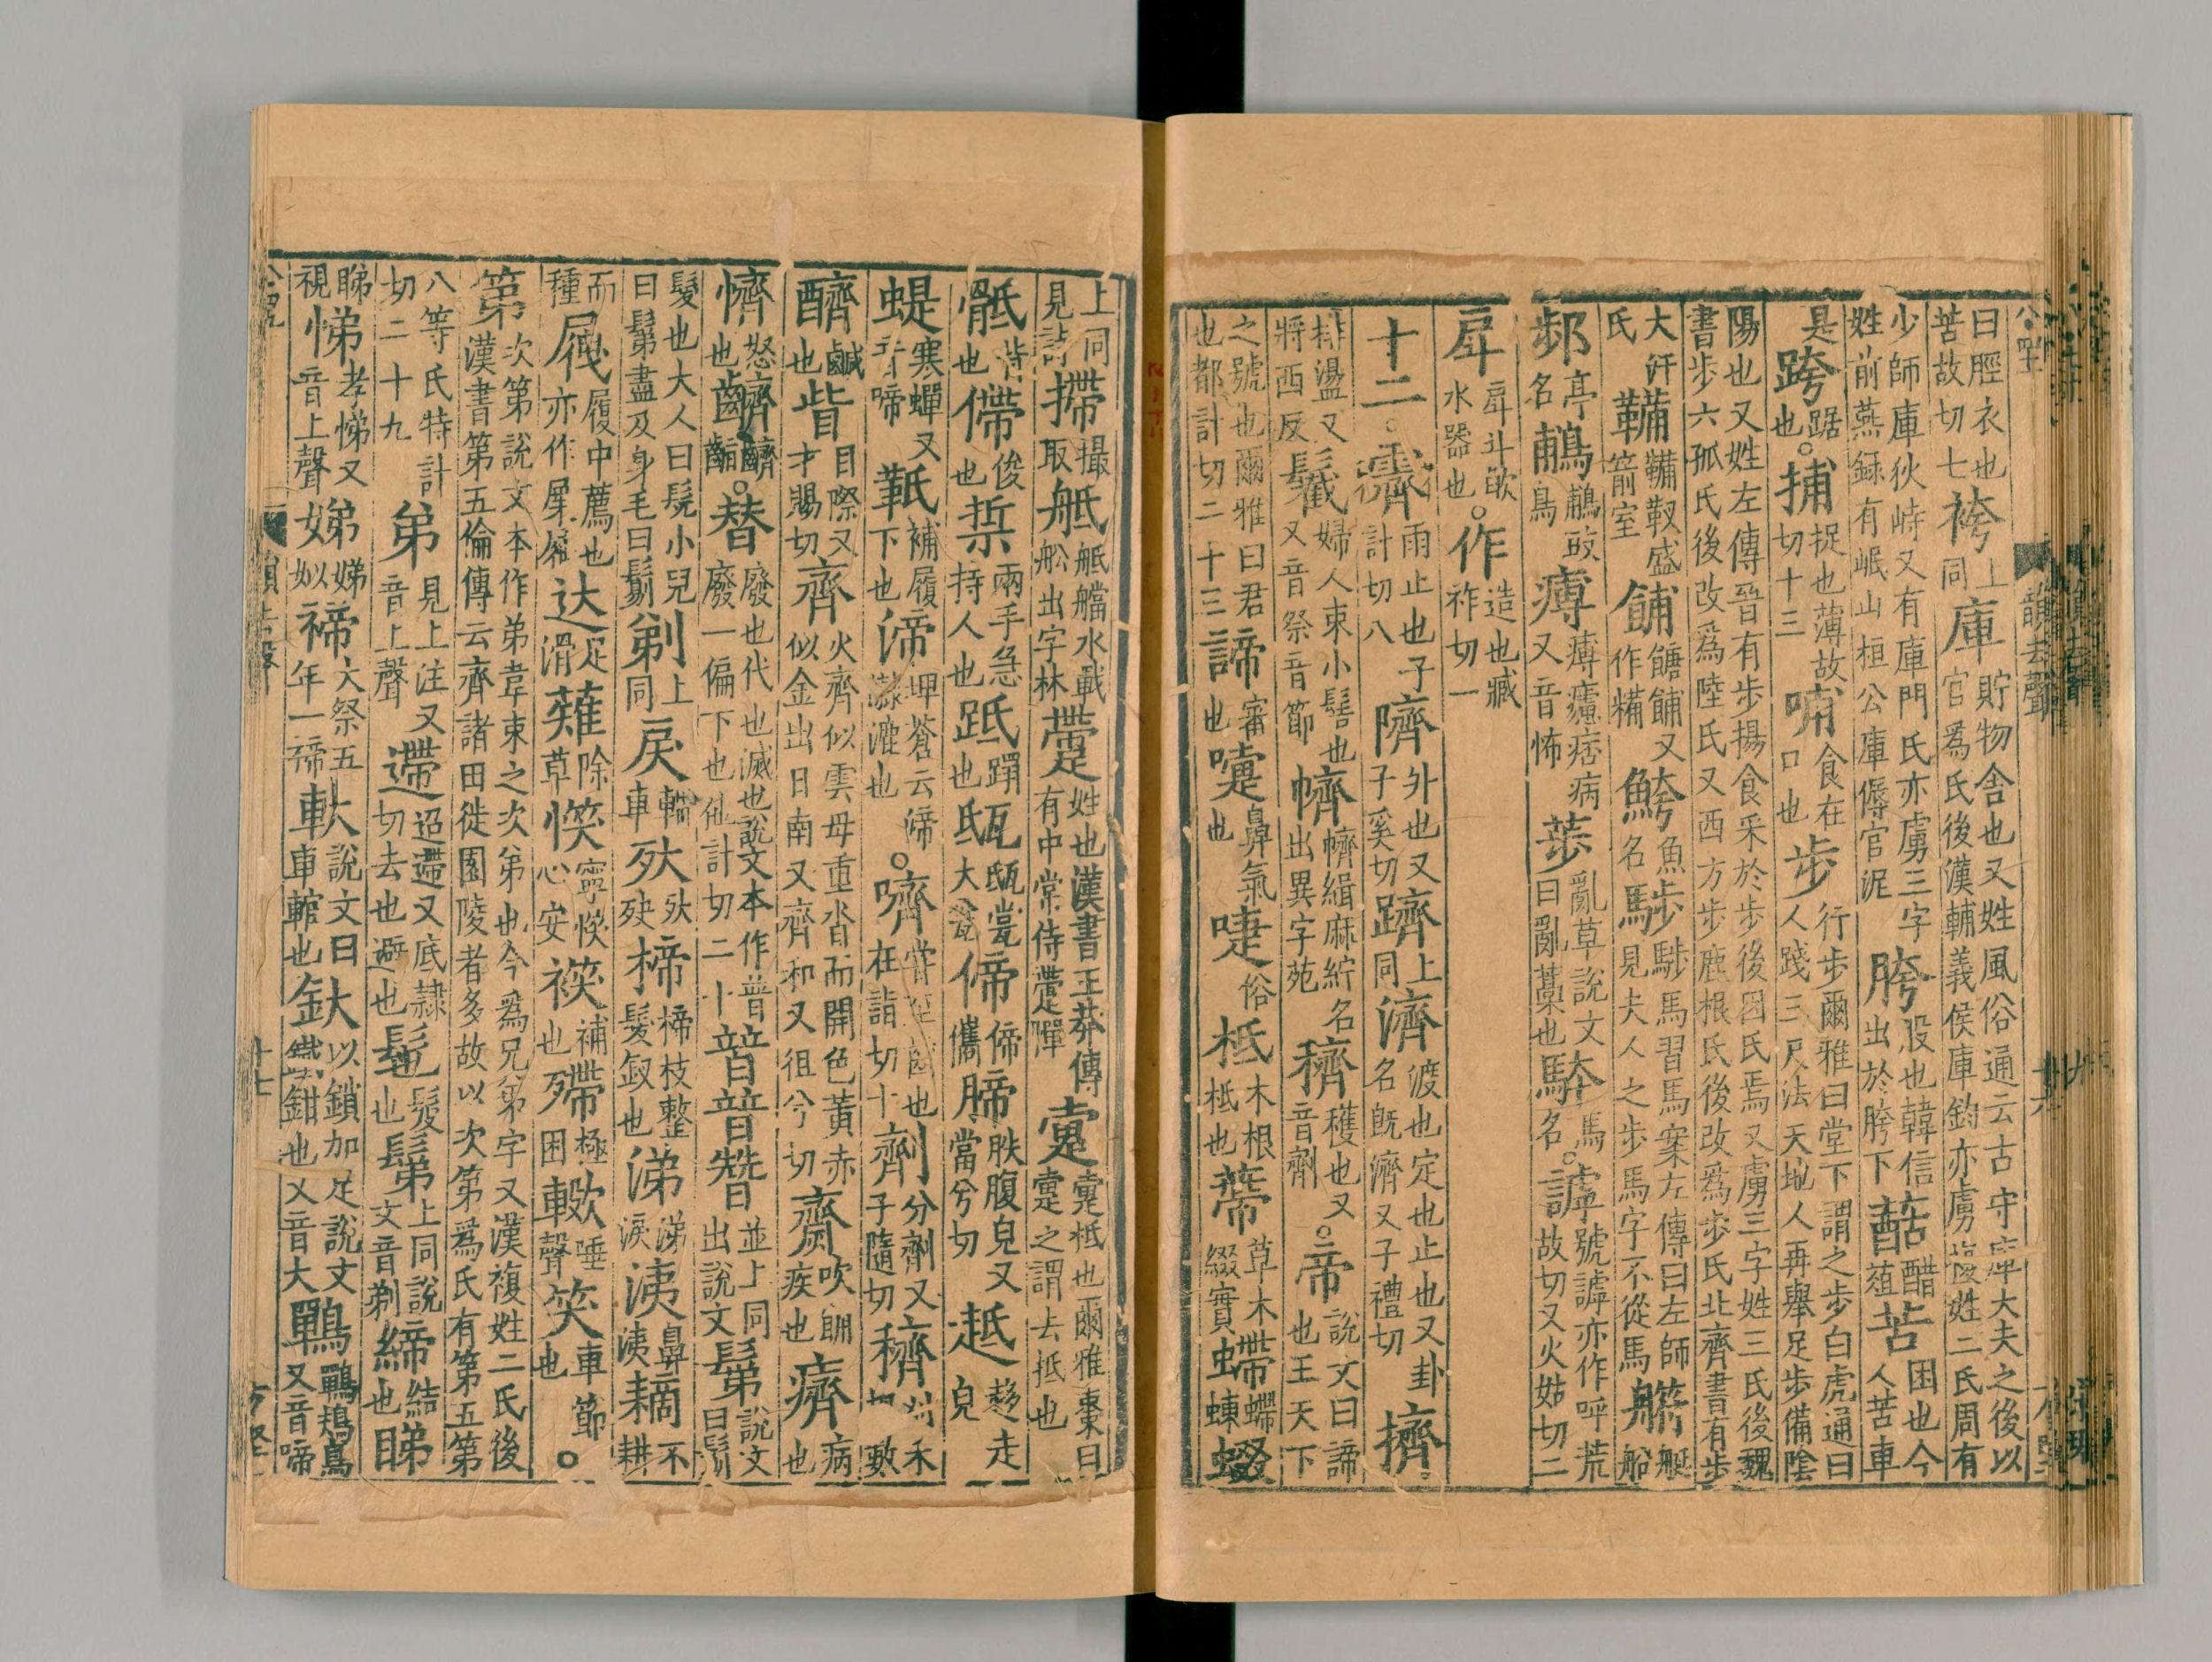 曰脛衣也苦故切七袴上同庫貯物舍也又姓風俗通云古守庫大夫之後以官爲氏後漢輔義侯庫鈞亦虜複姓二氏周有
少師庫狄峙又有庫門氏亦虜三字姓前燕録有岷山桓公庫傉官泥胯股也韓信出於胯下䔯醋葅苦困也今人苦車
是跨踞也。捕捉也薄故切十三哺食在口也步行步爾雅曰堂下謂之步白虎通曰人踐三尺法天地人再舉足步備陰
陽也又姓左傳晉有步揚食采於步後因氏焉又虜三字姓三氏後魏書步六孤氏後改爲陸氏又西方步鹿根氏後改爲步氏北齊書有步
大汗氏鞴鞴靫盛箭室餔餹餔又作䊇䱛魚名䮌䮌馬習馬案左傳曰左師見夫人之步馬字不從馬艜艇船
䣝亭名鵏鵏䳊鳥𤸵𤸵㾄痞病又音怖荹亂草說文曰亂藁也䮛馬名。謼號謼亦作呼荒故切又火姑切二
戽戽斗㪺水器也。作造也臧祚切一
十二。霽雨止也子計切八隮外也又子奚切躋上同濟渡也定也止也又卦名既濟又子禮切擠
排盪又將西反䰏婦人束小髻也又音祭音節㡭㡭緝麻紵名出異字苑穧穫也又音劑。帝說文曰諦也王天下
之號也爾雅曰君也都計切二十三諦審也嚏鼻氣也㖷俗柢木根柢也蔕草木綴實螮螮蝀蝃
上同見詩摕撮取䑛䑛艡水戰舩出字林䗖姓也漢書王莽傳有中常侍䗖惲疐疐柢也爾雅棗曰疐之謂去抵也
骶背也㿃俊也䏿兩手急持人也䟡䠤也㼵㼵甇大瓮偙偙㒞腣胅腹皃又當兮切趆趍走皃
蝭寒蟬又音啼䩚補履下也渧埤蒼云渧㵣漉也。嚌嘗至齒也在詣切十劑分劑又子隨切穧刈禾把數
䶩鹹也眥目際又才賜切齊火齊似雲母重沓而開色黃赤似金出日南又齊和又徂兮切齌吹䬫疾也癠病也
懠怒也齌䶩。替廢也代也滅也說文本作普廢一偏下也他計切二十暜㬱並上同出說文䰂說文曰鬄
髮也大人曰髡小兒曰䰂盡及身毛曰鬄剃上同戾車轄㱔㱔殃楴楴枝整髮釵也涕涕淚洟鼻洟䎮不耕
而種屜履中薦也亦作屟屧达足滑薙除草㥴寧㥴心安䙿補也殢極困䡔唾聲笑車節也。
第次第說文本作弟韋束之次弟也今爲兄弟字又漢複姓二氏後漢書第五倫傳云齊諸田徙園陵者多故以次第爲氏有第五第
八等氏特計切二十九弟見上注又音上聲遰迢遰又底隷切去也避也髢髮也鬀上同說文音剃締結也睇
睇視悌孝悌又音上聲娣娣姒禘大祭五年一禘軑說文曰車輨也釱以鎖加足說文鐵鉗也又音大鷤鷤鴂鳥又音啼